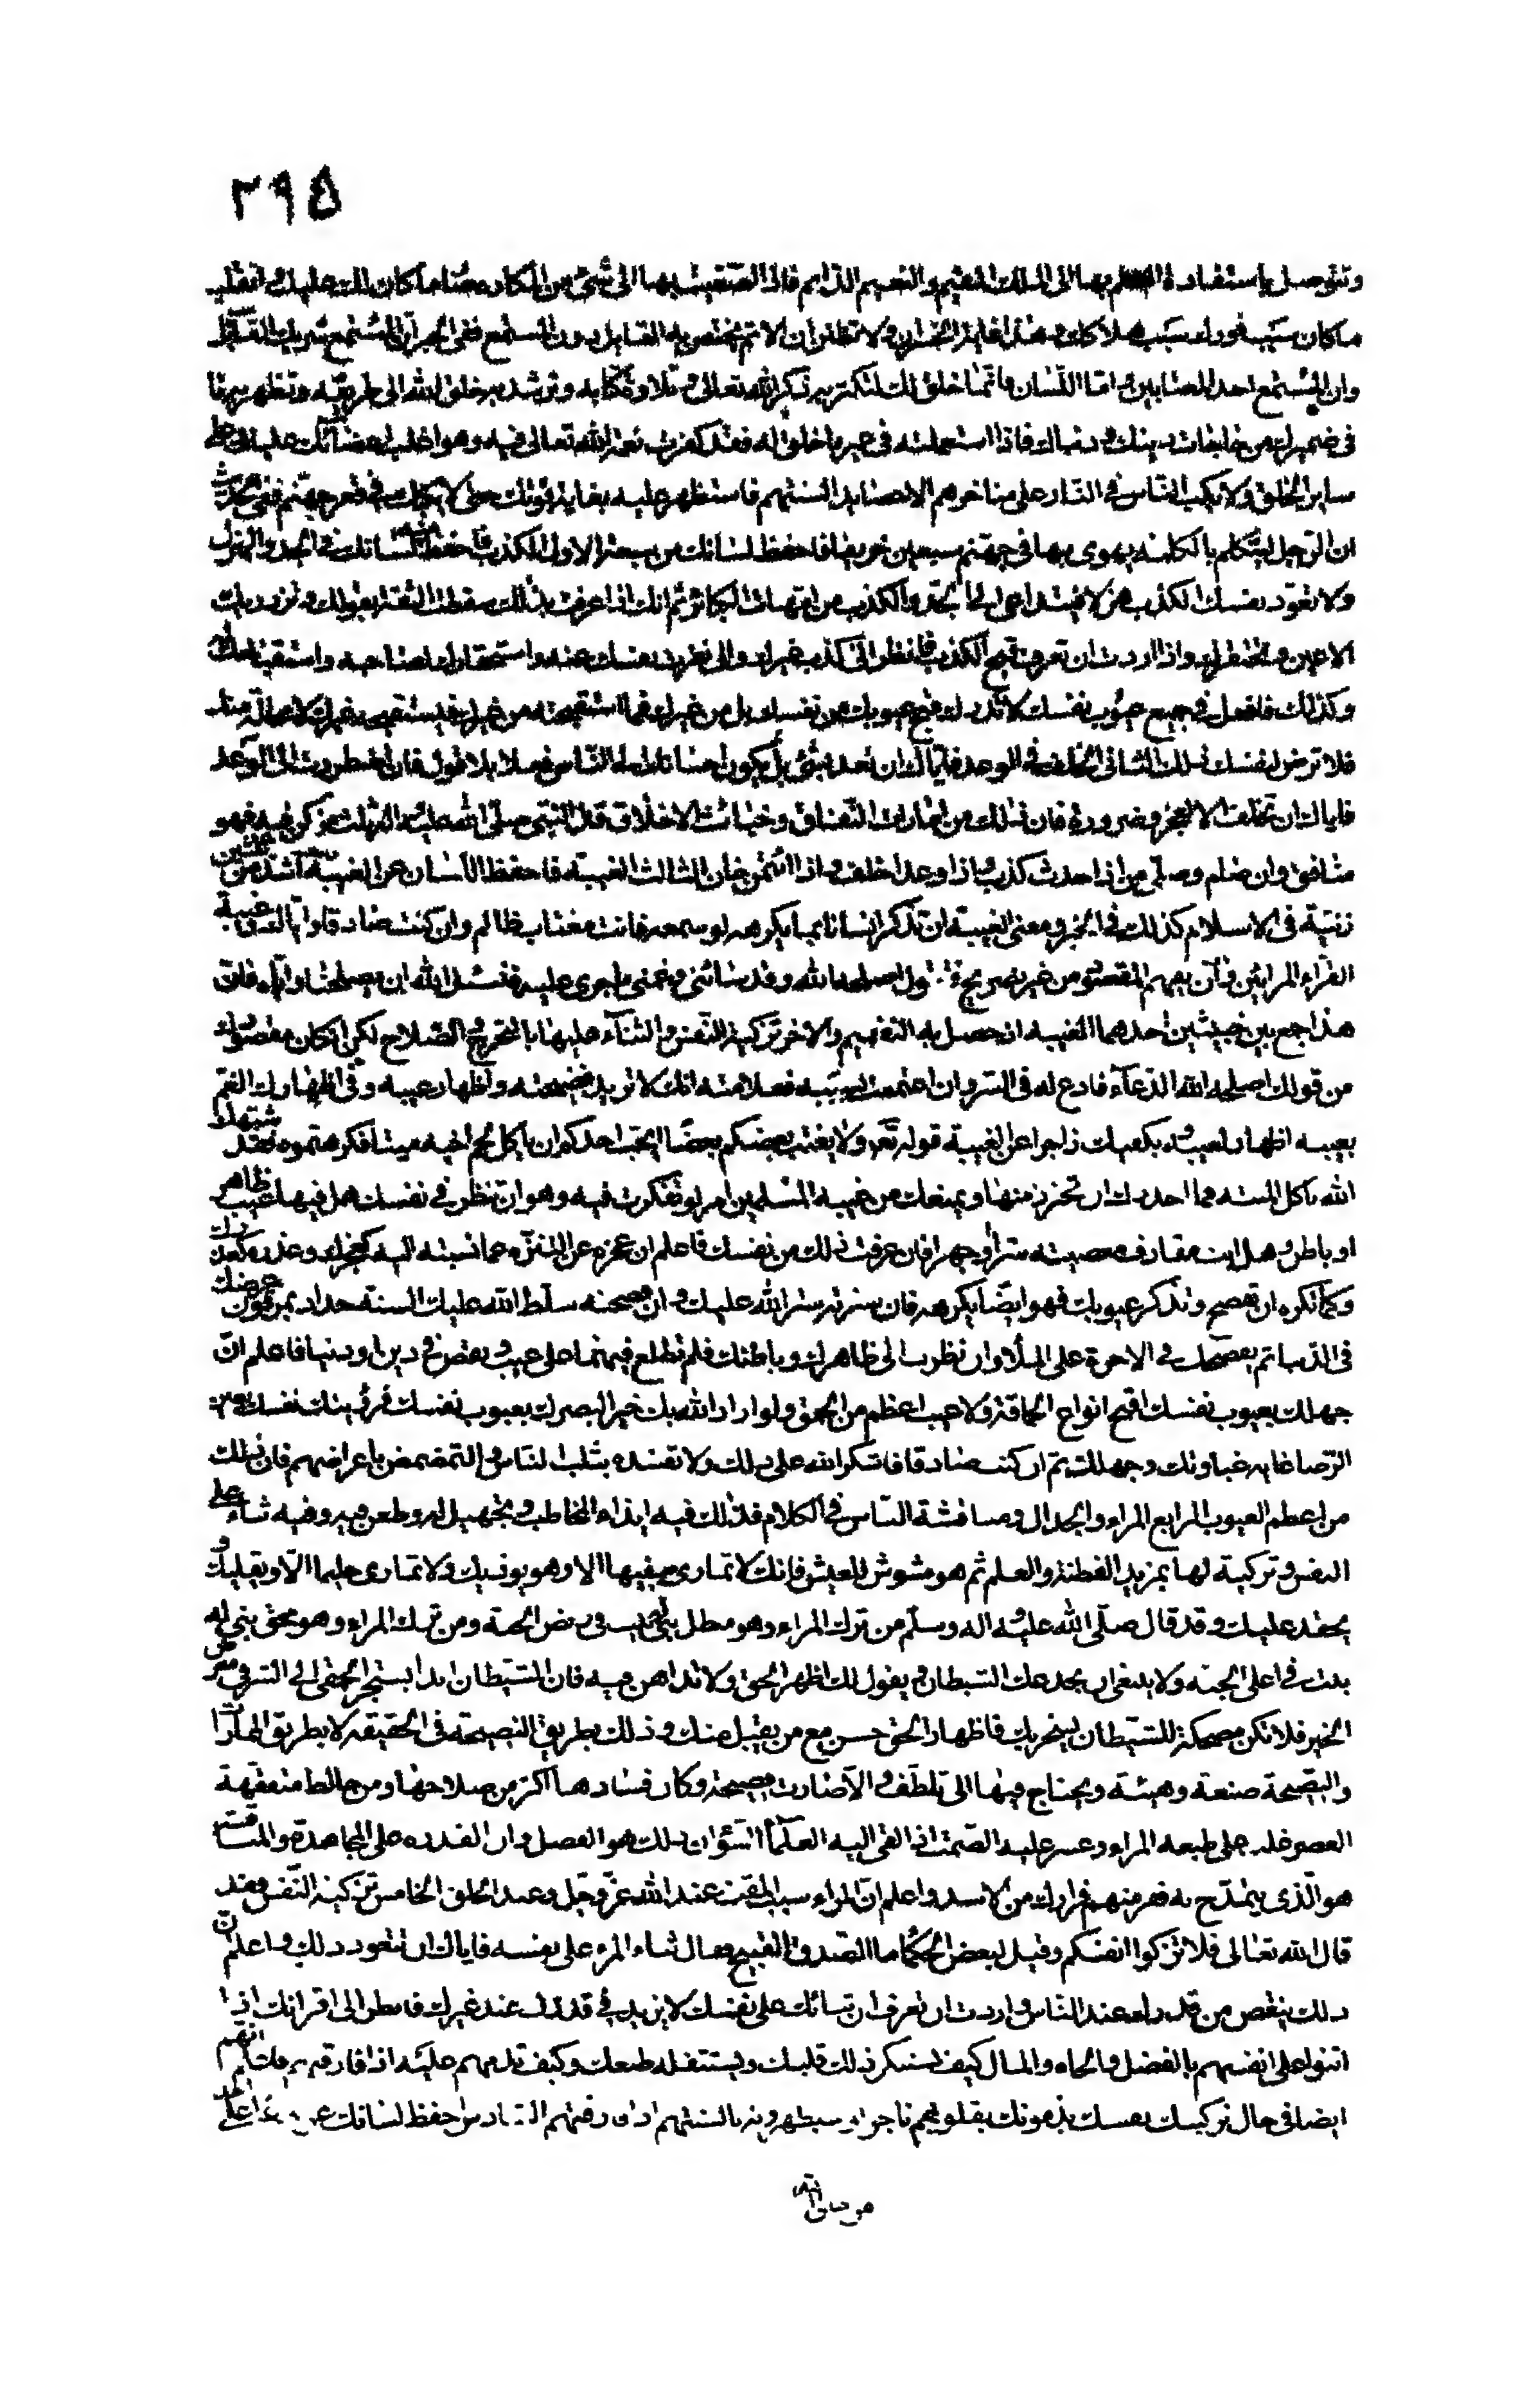 ٢٩٥
وتتوصل باستفادة العلم بها الى الملك المقيم والنعيم الدايم فاذا اصغيت بها الى شئ من المكاره صار ما كان لك عليك وانقلب
ما كان سبب فوزك سبب هلاكك وهذا غاية الخسران ولا تظنن ان الاثم يختص به القايل دون المستمع ففى الخبر ان المستمع شريك القايل
وان المستمع احد المغتابين واما اللسان فانما خلق لك لتكثر به ذكر الله تعالى وتلاوة كتابه وترشد به خلق الله الى طريقه وتظهر به ما
فى ضميرك من حاجات دينك ودنياك فاذا استعملته فى غير ما خلق له فقد كفرت نعمة الله تعالى فيه وهو اغلب اعضائك عليك وعلى
ساير الخلق ولا يكب الناس فى النار على مناخرهم الا حصايد السنتهم فاستظهر عليه بغاية قوتك حتى لا يكبك فى قعر جهنم ففى الحديث
ان الرجل ليتكلم بالكلمة يهوى بها فى جهنم سبعين خريفا فاحفظ لسانك من سبعة الاول الكذب فاحفظ منه لسانك فى الجد والهزل
ولا تعود نفسك الكذب هزلا فيتداعى الى الجد والكذب من امهات الكبائر ثم انك اذا عرفت بذلك سقطت الثقة بقولك وتزدريك
الاعين وتحتقرك واذا اردت ان تعرف قبح الكذب فانظر الى كذب غيرك والى نفرة نفسك عنه واستحقارك لصاحبه واستقباحك له
وكذلك فافعل فى جميع عيوب نفسك لانك لا تدرك قبح عيوبك من نفسك بل من غيرك فما استقبحته من غيرك فيستقبحه غيرك منك لا محالة
فلا ترض لنفسك ذلك الثانى الخلف فى الوعد فاياك ان تعد بشئ بل يكون احسانك الى الناس فعلا بلا قول فان اضطررت الى الوعد
فاياك ان تخلف الا لعجز وضرورة فان ذلك من امارات النفاق وخبائث الاخلاق قال النبى صلى الله عليه واله ثلث من كن فيه فهو
منافق وان صام وصلى من اذا حدث كذب واذا وعد اخلف واذا ائتمن خان الثالث الغيبة فاحفظ اللسان عن الغيبة اشد من ثلثين
زنية فى الاسلام كذلك فى الخبر ومعنى الغيبة ان تذكر انسانا بما يكرهه لو سمعه فانت مغتاب ظالم وان كنت صادقا واياك وغيبة
القراء المرائين وان يفهم المقصود من غير تصريح فتقول اصلحه الله وقد ساءنى وغمنى ما جرى عليه فنسئل الله ان يصلحنا واياه فان
هذا جمع بين خبيثين احدهما الغيبة اذ حصل به التفهيم والاخر تزكية النفس والثناء عليها بالتحرج والصلاح لكن ان كان مقصودك
من قولك اصلحه الله الدعاء فادع له فى السر وان اغتممت بسببه فعلامته انك لا تريد فضيحته واظهار عيبه وفى اظهارك الغم
بعيبه اظهار لعيبه ويكفيك زاجرا عن الغيبة قوله تعالى ولا يغتب بعضكم بعضا ايحب احدكم ان يأكل لحم اخيه ميتا فكرهتموه فقد شبهك
الله باكل الميتة فما اجدرك ان تحترز منها ويمنعك من غيبة المسلمين امر لو تفكرت فيه وهو ان تنظر فى نفسك هل فيها عيب ظاهر
او باطن وهل انت مقارف معصيته سرا وجهرا فان عرفت ذلك من نفسك فاعلم ان عجزه عن التنزه عما نسبته اليه كعجزك وعذره كعذرك
وكما تكره ان تفضح وتذكر عيوبك فهو ايضا يكرهه فان سترته ستر الله عليك وان فضحته سلط الله عليك السنة حدادا يمزقون عرضك
فى الدنيا ثم يفضحك فى الاخرة على الملأ وان نظرت الى ظاهرك وباطنك فلم تطلع فيهما على عيب ونقص فى دين او دنيا فاعلم ان
جهلك بعيوب نفسك اقبح انواع الحماقة ولا عيب اعظم من الحمق ولو اراد الله بك خيرا لبصرك بعيوب نفسك فرؤيتك نفسك بعين
الرضا غاية غباوتك وجهلك ثم ان كنت صادقا فاشكر الله على ذلك ولا تفسده بثلب الناس والتمضمض باعراضهم فان ذلك
من اعظم العيوب الرابع المراء والجدال ومناقشة الناس فى الكلام فذلك فيه ايذاء المخاطب وتجهيل له وطعن فيه وفيه ثناء على
النفس وتزكية لها بمزيد الفطنة والعلم ثم هو مشوش للعيش فانك لا تمارى سفيها الا وهو يوذيك ولا تمارى حليما الا ويقليك و
يحقد عليك وقد قال صلى الله عليه واله وسلم من ترك المراء وهو مبطل بنى له بيت فى ربض الجنة ومن ترك المراء وهو محق بنى له
بيت فى اعلى الجنة ولا ينبغى ان يخدعك الشيطان ويقول لك اظهر الحق ولا تداهن فيه فان الشيطان ابدا يستجر الحمقى الى الشر فى معرض
الخير فلا تكن ضحكة للشيطان ليسخر بك فاظهار الحق حسن مع من يقبل منك وذلك بطريق النصيحة فى الحقيقة لا بطريق المماراة
والنصيحة صنعة وهيئة ويحتاج فيها الى تلطف والا صارت فضيحة وكان فسادها اكثر من صلاحها ومن خالط متفقهة
العصر غلب على طبعه المراء وعسر عليه الصمت اذ القى اليه العلماء السوء ان ذلك هو الفضل وان القدرة على المجاهدة والمناقشة
هو الذى يتمدح به ففر منهم فرارك من الاسد واعلم ان المراء سبب المقت عند الله عز وجل وعند الخلق الخامس تزكية النفس فقد
قال الله تعالى فلا تزكوا انفسكم وقيل لبعض الحكما ما الصدق القبيح فقال ثناء المرء على نفسه فاياك ان تتعود ذلك واعلم ان
ذلك ينقص من قدرك عند الناس واردت ان تعرف ان ثنائك على نفسك لا يزيد فى قدرك عند غيرك فانظر الى اقرانك اذا
اثنوا على انفسهم بالفضل والجاه والمال كيف يستنكر ذلك قلبك ويستثقله طبعك وكيف تذمهم عليه اذا فارقتهم فاعلم انهم
ايضا فى حال تزكيتك نفسك يذمونك بقلوبهم ناجزا وسيظهرونه بالسنتهم اذا فارقتهم السادس احفظ لسانك عن